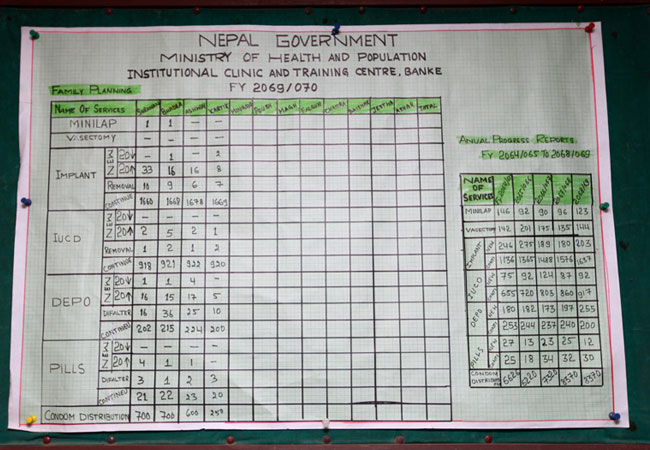 NEPAL GOVERNMENT
MINISTRY OF HEALTH AND POPULATION
INSTITUTIONAL CLINIC AND TRAINING CENTRE, BANKE
FY 2069/070
FAMILY PLANNING
NAME OF SERVICES SHRAWAN BHADRA ASHWIN KARTIK POUSH MAGH CHAITRA JESTHA ASHAR TOTAL
MINILAP 1 1 – –
VASECTOMY – – – –
IMPLANT NEW 20↓ – 1 – 2
20↑ 33 16 16 8
REMOVAL 10 9 6 7
CONTINUE 1660 1668 1678 1669
IUCD NEW 20↓ – – – –
20↑ 2 5 2 1
REMOVAL 1 2 1 2
CONTINUE 918 921 922 920
DEPO NEW 20↓ – 1 4 –
20↑ 16 15 17 5
DIFALTER 16 36 25 10
CONTINEU 202 215 224 200
PILLS NEW 20↓ – – – –
20↑ 4 1 1 –
DIFALTER 3 1 2 3
CONTINEU 21 22 23 20
CONDOM DISTRIBUTION 700 700 600 250
ANUAL PROGRESS REPORTS
FY 2064/065 TO 2068/069
NAME OF SERVICES 2064/065 2065/066 2066/067 2067/068 2068/069
MINILAP 146 92 90 96 123
VASECTOMY 142 201 175 135 144
IMPLANT NEW 246 275 189 180 203
1136 1365 1488 1576 1637
IUCD NEW 75 92 124 87 92
655 720 803 860 917
DEPO NEW 180 182 173 197 255
253 244 237 240 200
PILLS NEW 27 13 23 25 12
25 18 34 32 30
CONDOM DISTRIBUTION 6220 7320 8370 8370